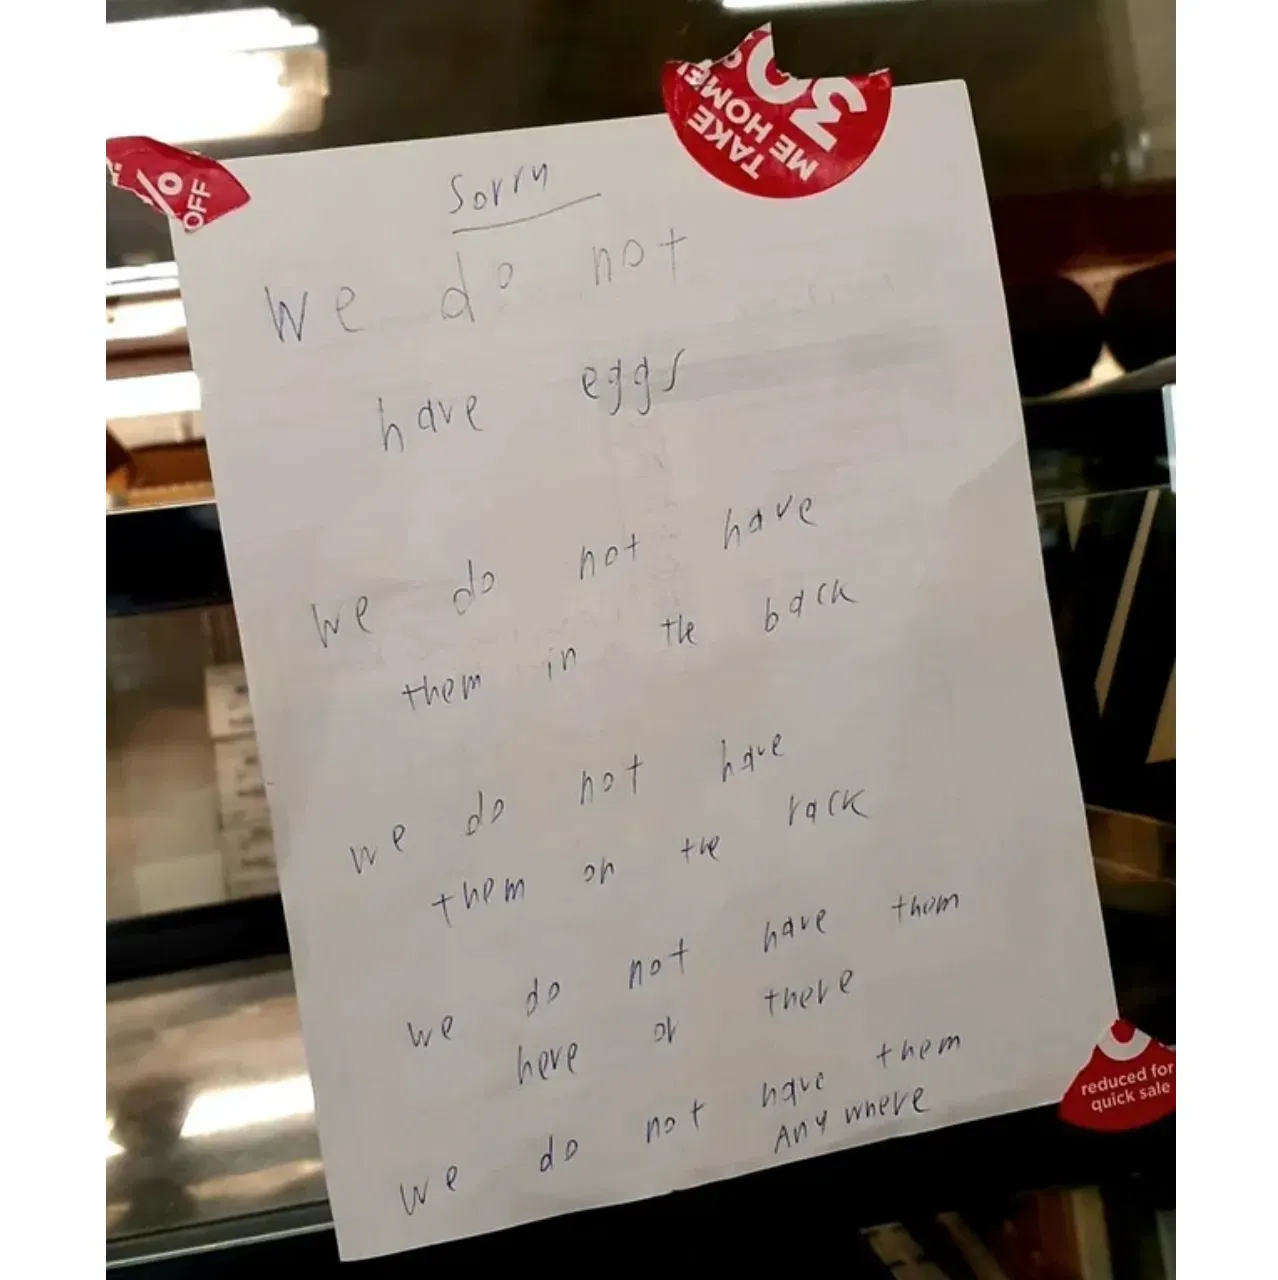 Sorry
we do not
have eggs
we do not have
them in the back
we do not have
them on the rack
we do not have them
here or there
we do not have them
Any where
% OFF
TAKE
ME HOME!
30
reduced for
quick sale